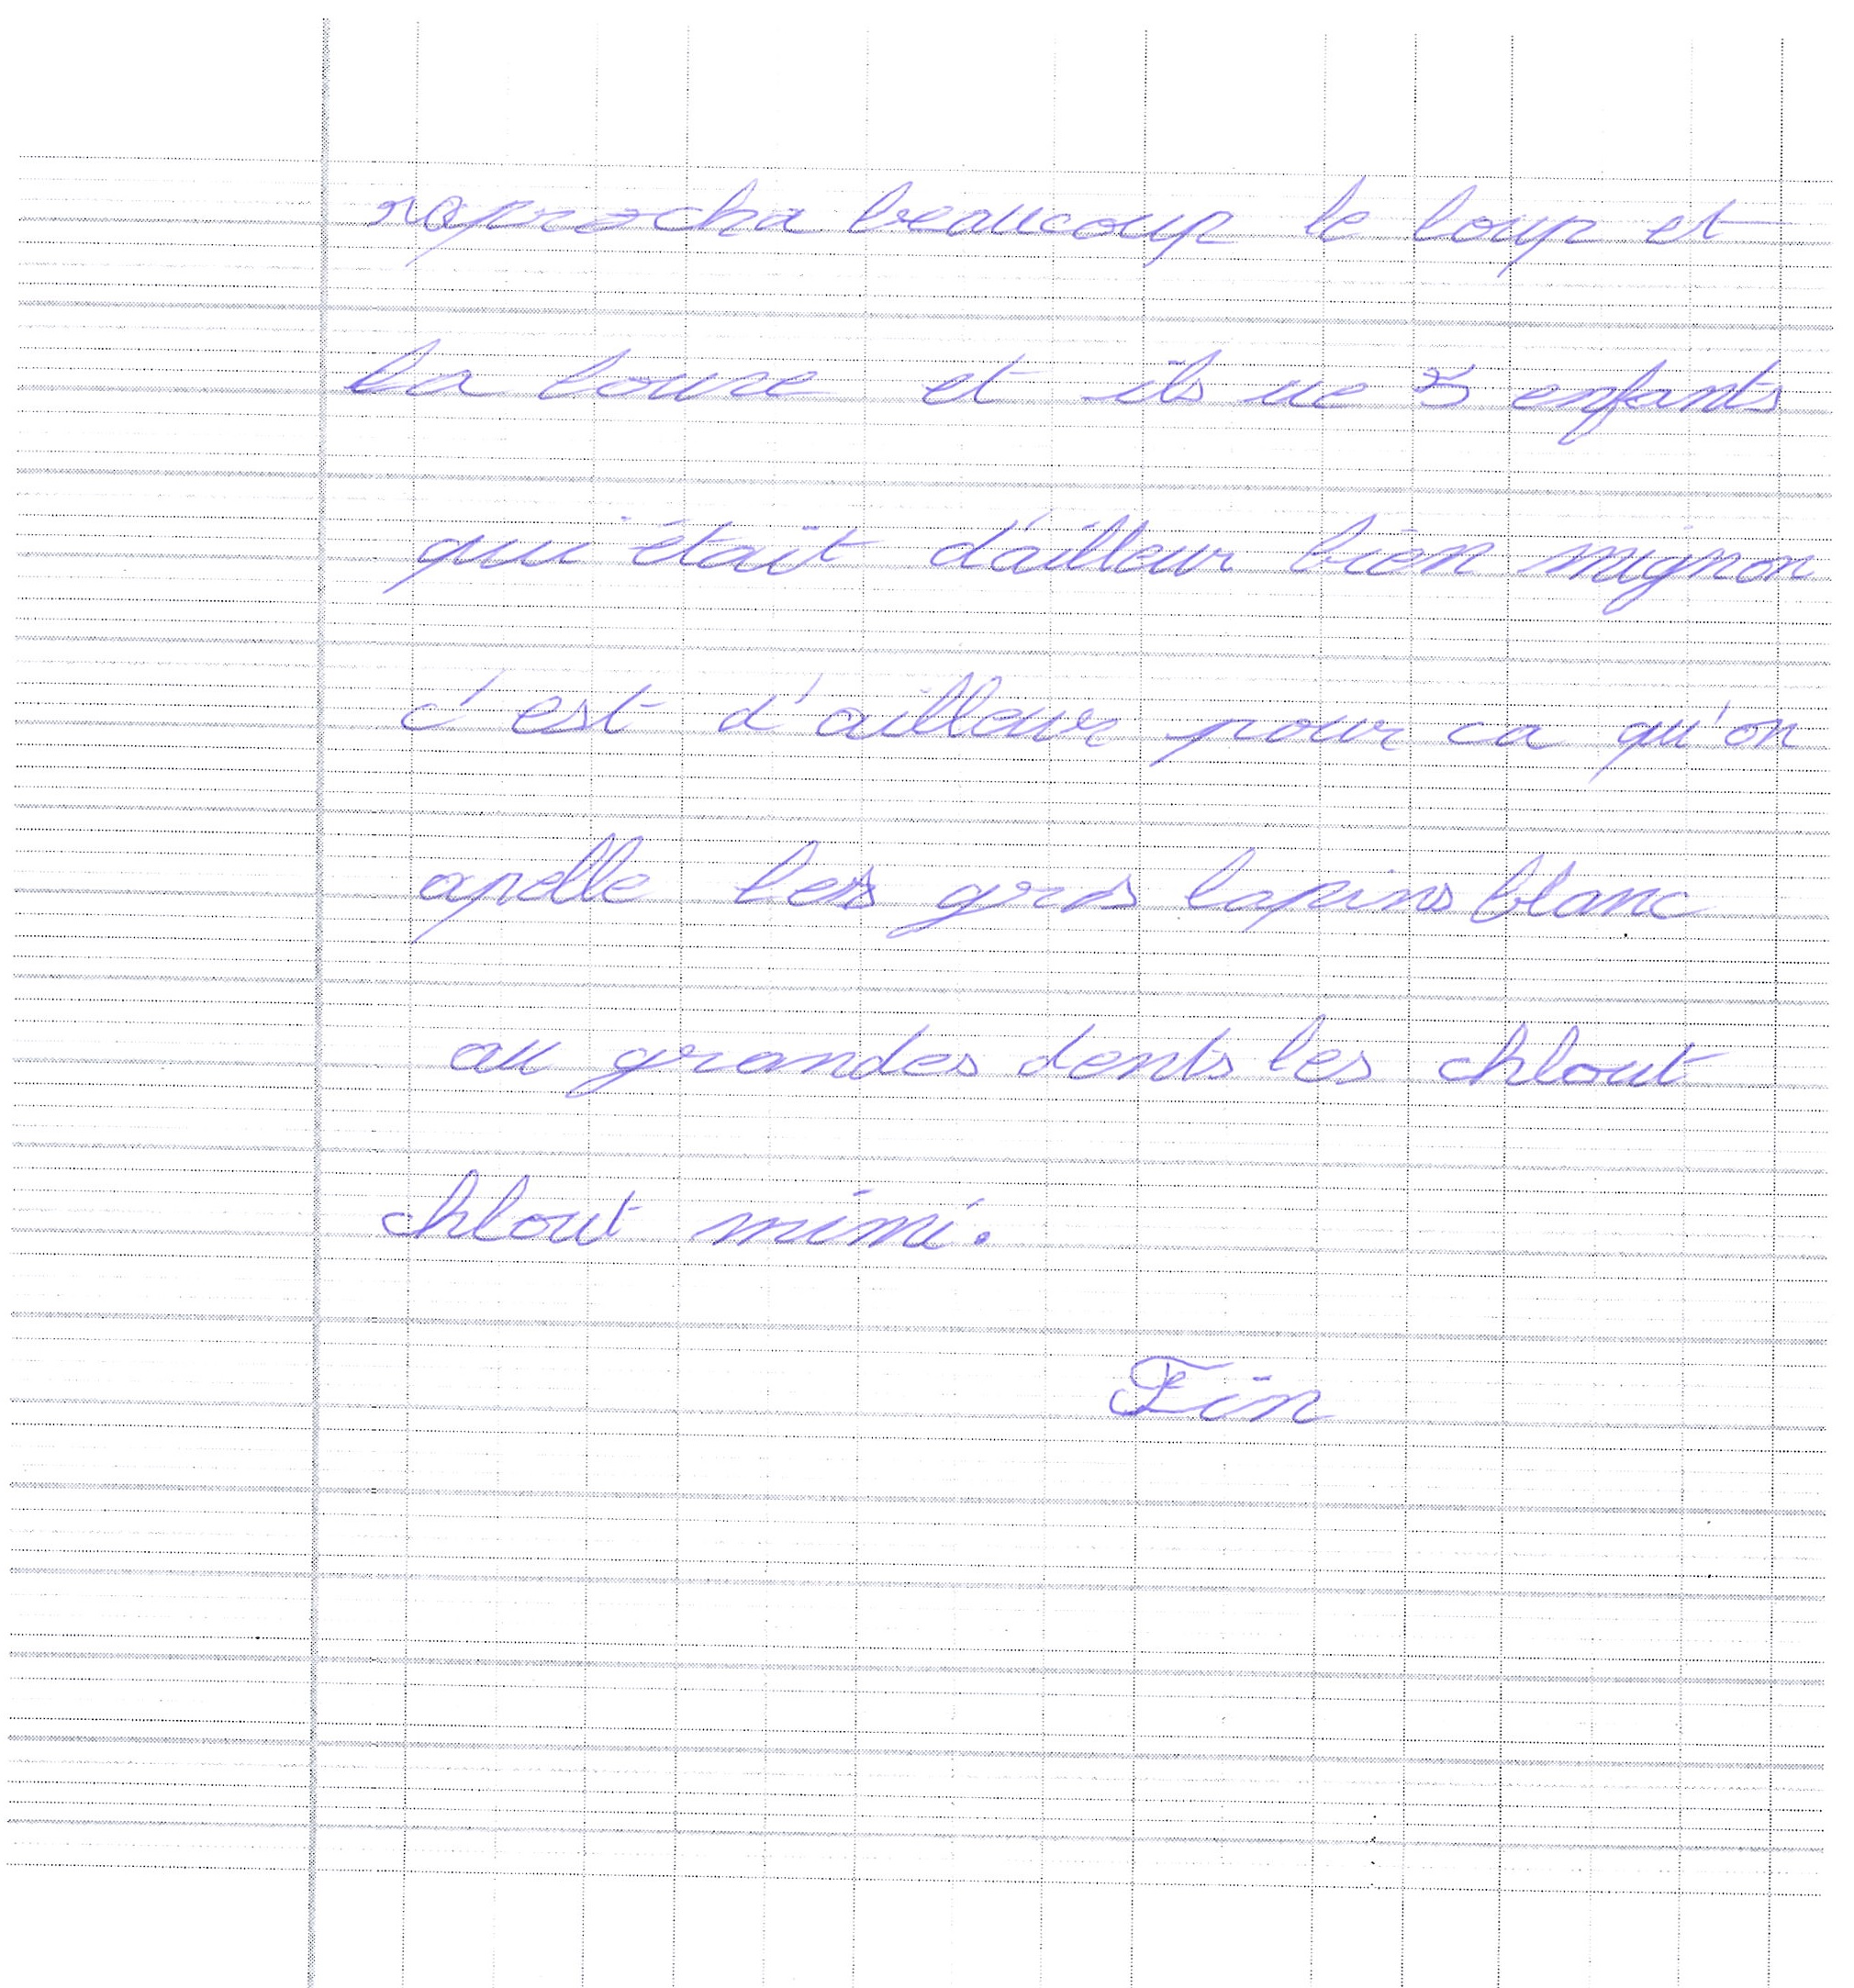 raprocha beaucoup le loup et
la louve et ils ue 3 enfants
qui était d'ailleur bien mignon
c'est d'ailleur pour ca qu'on
apelle les gros lapins blanc
au grandes dents les chlout
chlout mimi.
Fin